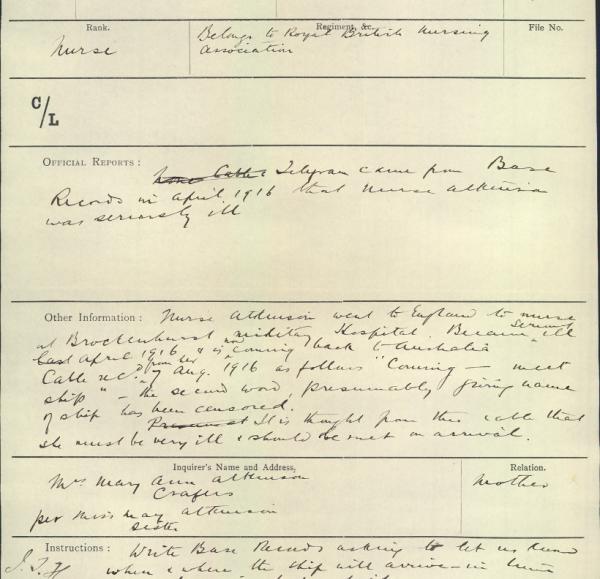 Rank.
Regiment, &c.
File No.
Nurse
Belongs to Royal British Nursing
Association
C/L
OFFICIAL REPORTS :
Telegram came from Base
Records in April, 1916 that Nurse Atkinson
was seriously ill
Other Information : Nurse Atkinson went to England to nurse
at Brockenhurst Military Hospital. Became seriously ill
last April 1916 & is now coming back to Australia
Cable rec. from her 7 Aug. 1916 as follows "Coming — meet
ship" — the second word, presumably giving name
of ship has been censored.
It is thought from this cable that
she must be very ill & should be met on arrival.
Inquirer's Name and Address,
Relation.
Mrs Mary Ann Atkinson
Mother
Crafers
per Miss May Atkinson
sister
Instructions : Write Base Records asking to let us know
when & where the ship will arrive